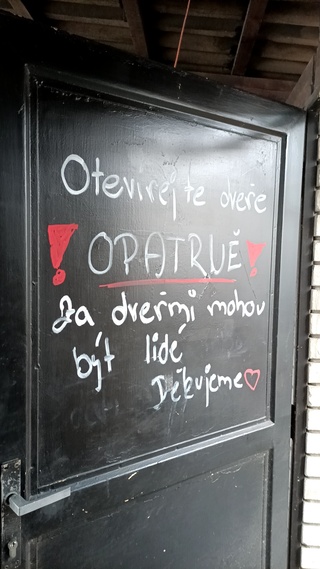 Otevírejte dveře
! OPATRNĚ !
Za dveřmi mohou
být lidé
Děkujeme ♡